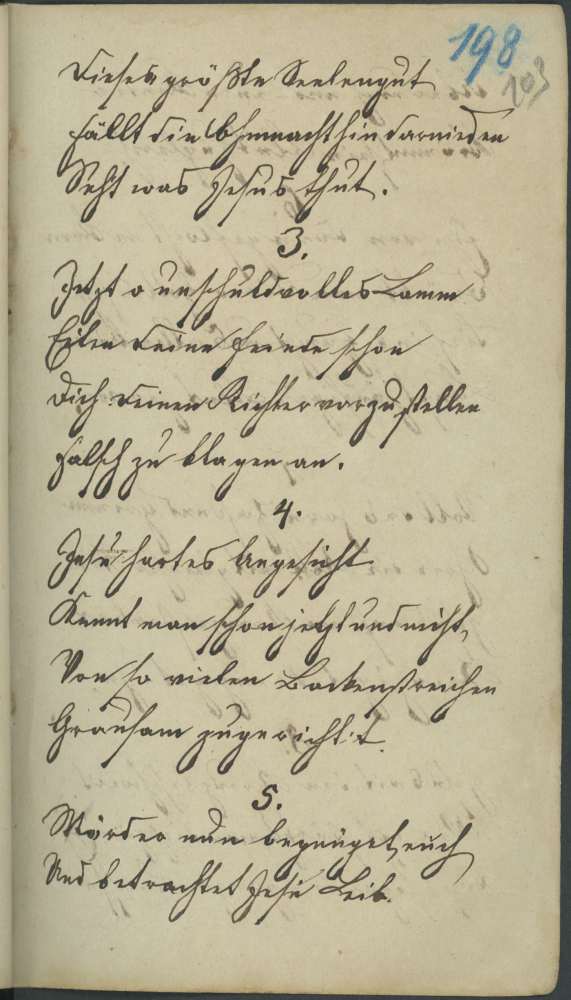 198
103
Dieses größte Seelengut
Fällt die Ohnmacht hin darnieden
Seht was Jesus thut.
3.
Jetzt o unschuldvolles Lamm
Eilen deine Feinde schon
Dich deinen Richter vorzustellen
Falsch zu klagen an.
4.
Jesu hartes Angesicht
Kennt man schon jetzt und nicht,
Von so vielen Backenstreichen
Grausam zugericht't
5.
Mörder nun begnüget euch
Und betrachtet Jesu Leib.